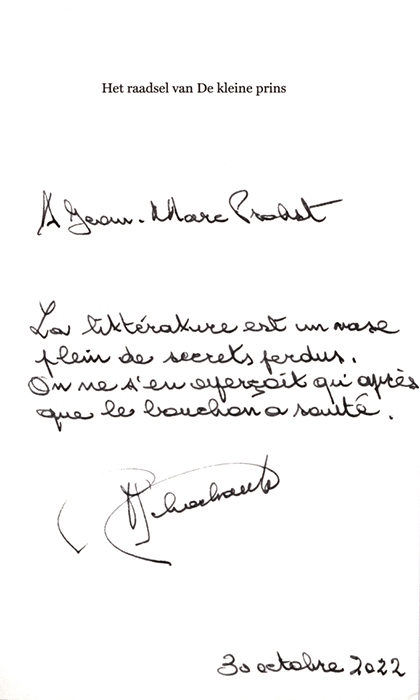 Het raadsel van De kleine prins
A Jean-Marc Probst
La littérature est un vase
plein de secrets perdus.
On ne s'en aperçoit qu'après
que le bouchon a sauté.
30 octobre 2022